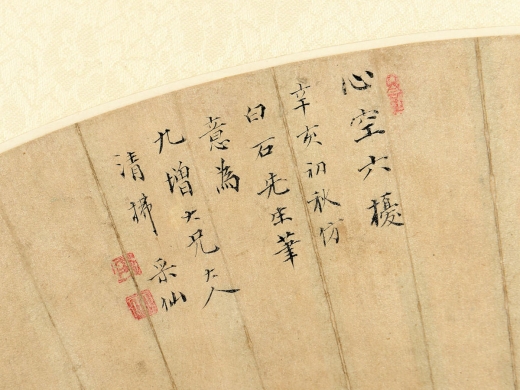 心空六擾
辛亥初秋仿
白石先生筆
意為
九增大兄大人
清拂 采仙